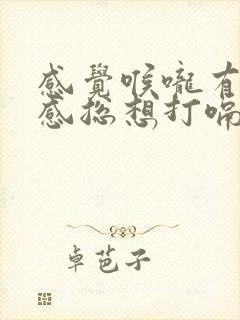 感覺喉嚨有
感總想打嗝
卓芭子